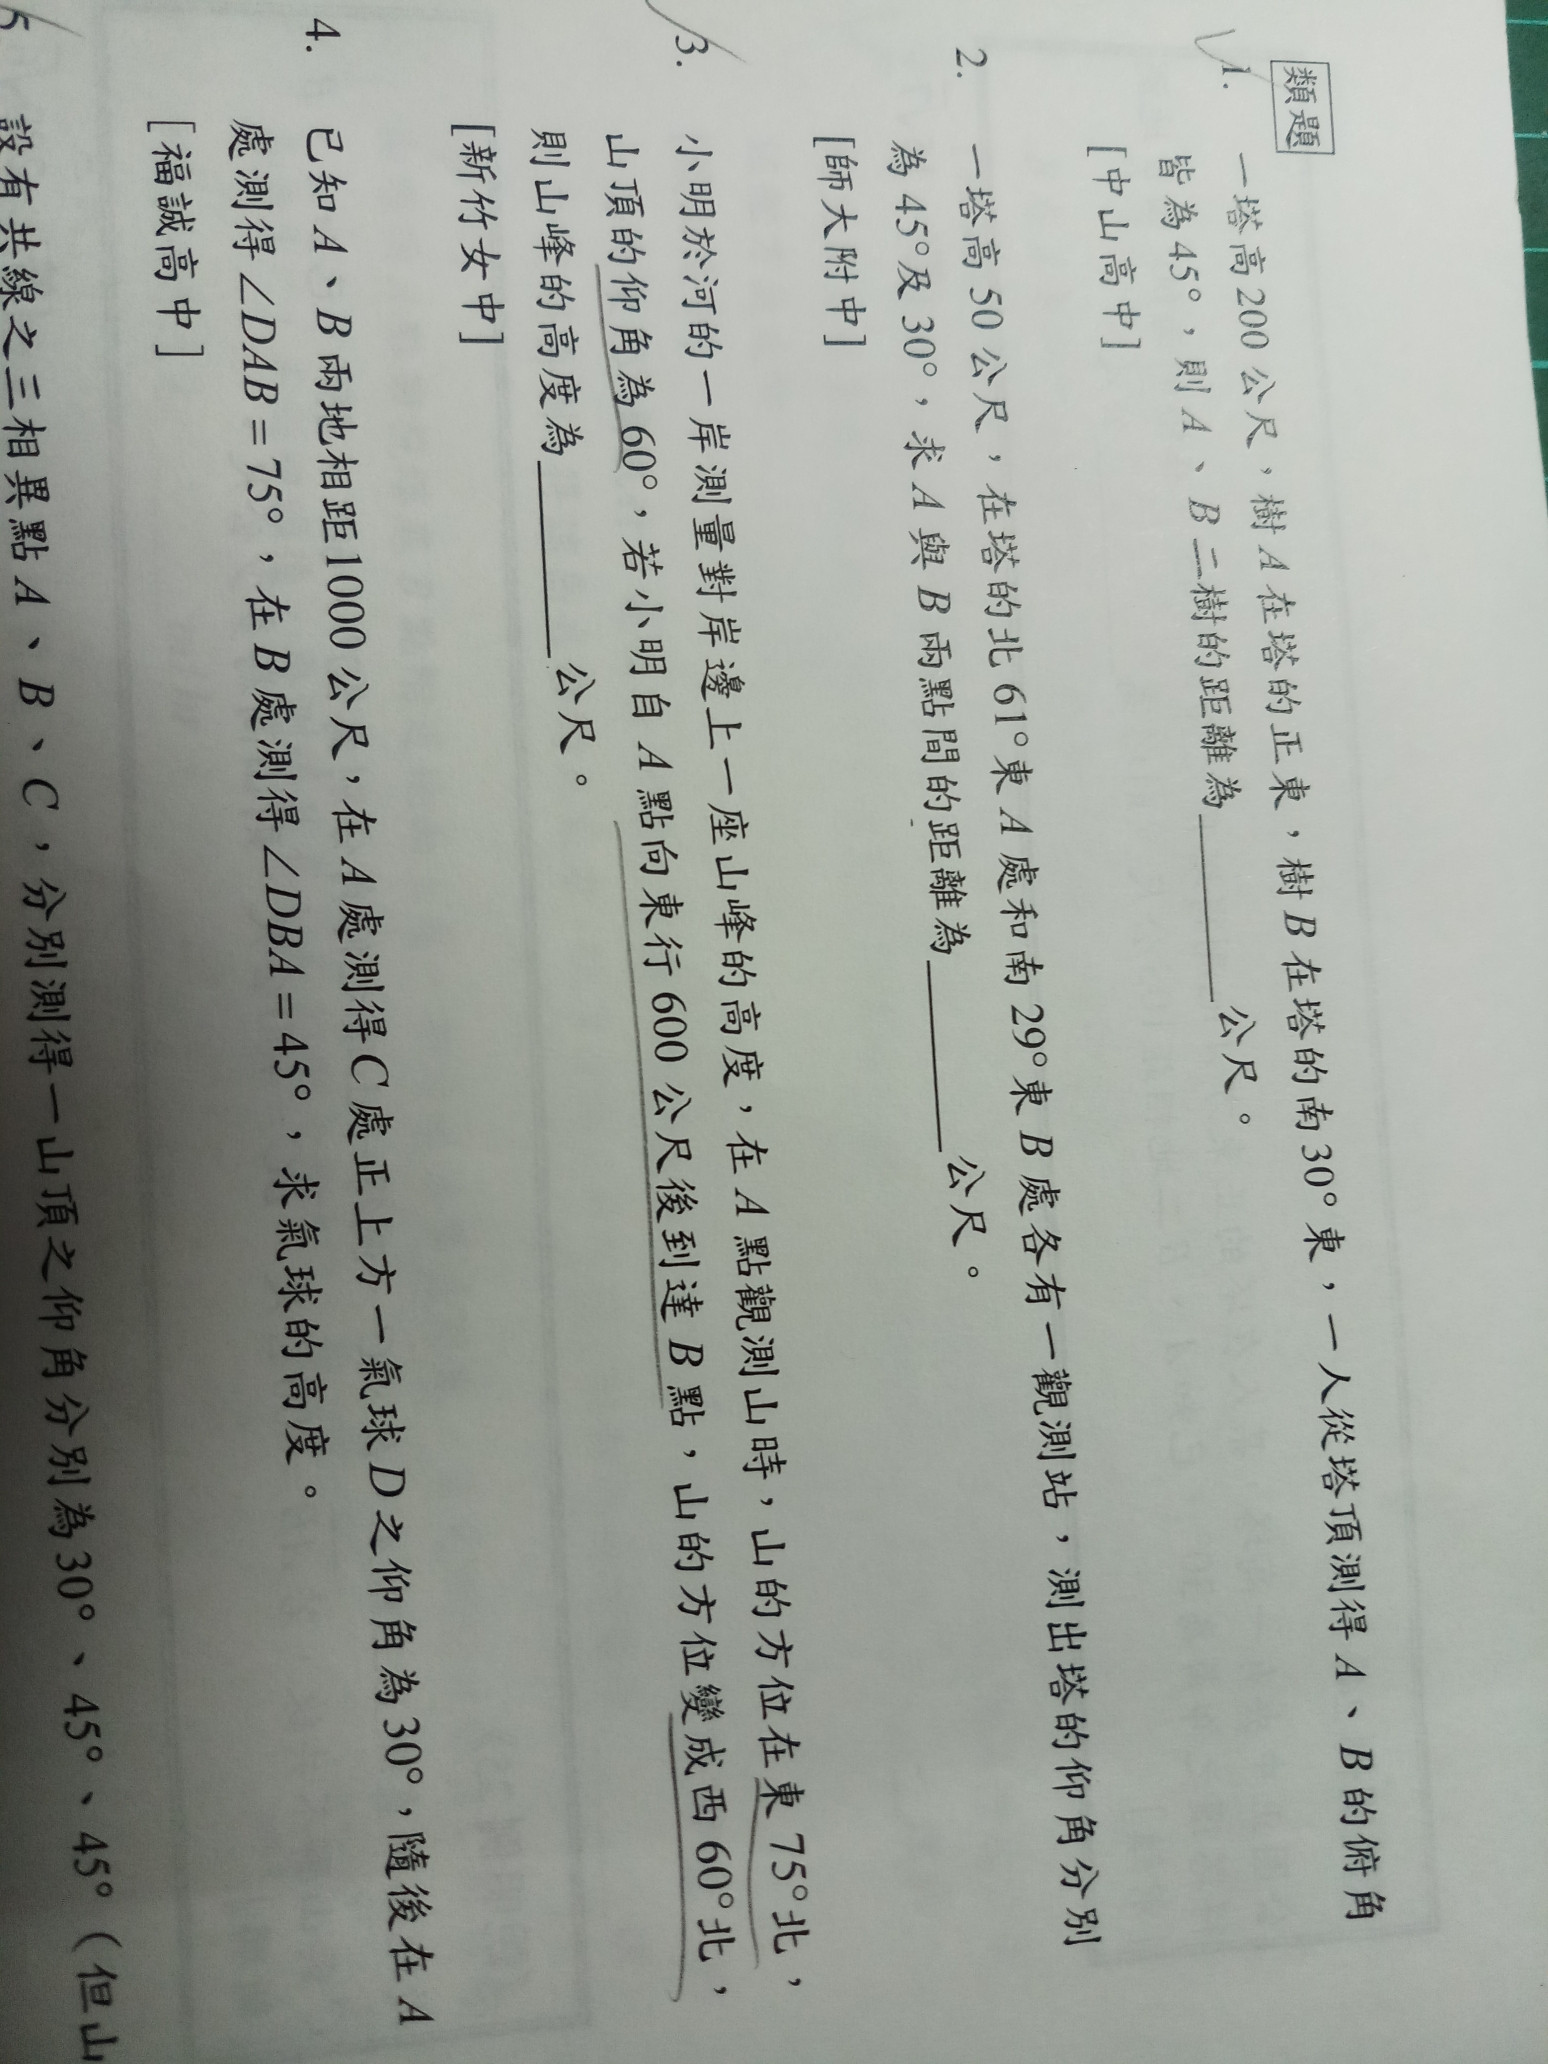 類題
1. 一塔高200公尺，樹A在塔的正東，樹B在塔的南30°東，一人從塔頂測得A、B的俯角
皆為45°，則A、B二樹的距離為________公尺。
[中山高中]
2. 一塔高50公尺，在塔的北61°東A處和南29°東B處各有一觀測站，測出塔的仰角分別
為45°及30°，求A與B兩點間的距離為________公尺。
[師大附中]
3. 小明於河的一岸測量對岸邊上一座山峰的高度，在A點觀測山時，山的方位在東75°北，
山頂的仰角為60°，若小明自A點向東行600公尺後到達B點，山的方位變成西60°北，
則山峰的高度為________公尺。
[新竹女中]
4. 已知A、B兩地相距1000公尺，在A處測得C處正上方一氣球D之仰角為30°，隨後在A
處測得∠DAB=75°，在B處測得∠DBA=45°，求氣球的高度。
[福誠高中]
5. 設有共線之三相異點A、B、C，分別測得一山頂之仰角分別為30°、45°、45°（但山